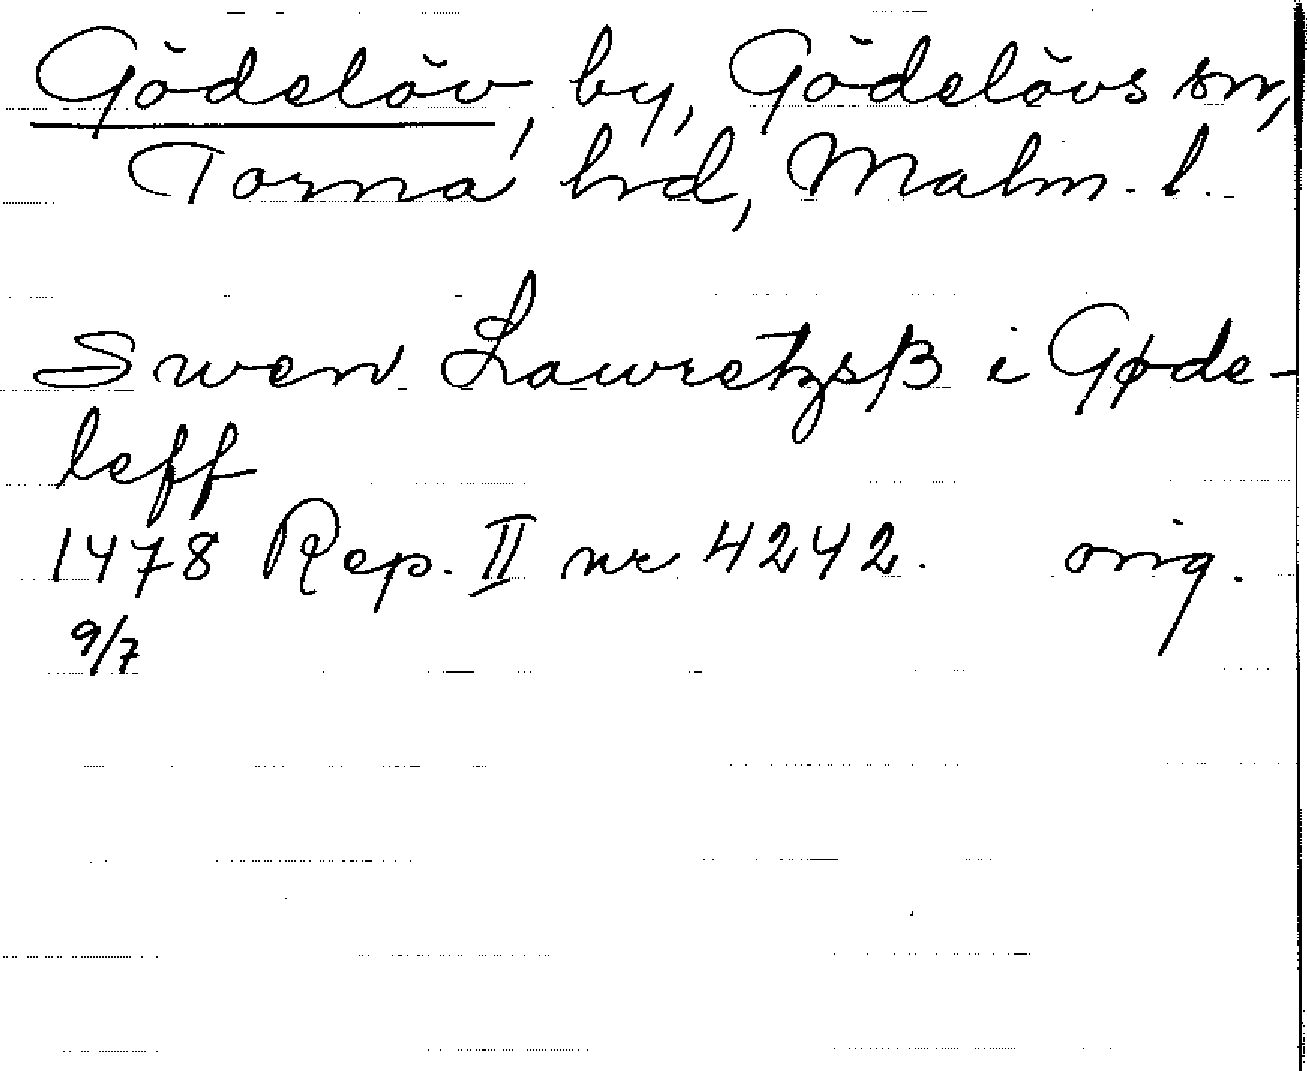 Gödelöv, by, Gödelövs sn,
Torna hd, Malm. l.
Swen Lawretzsß i Gøde-
leff
1478 Rep. II nr 4242. orig.
9/7